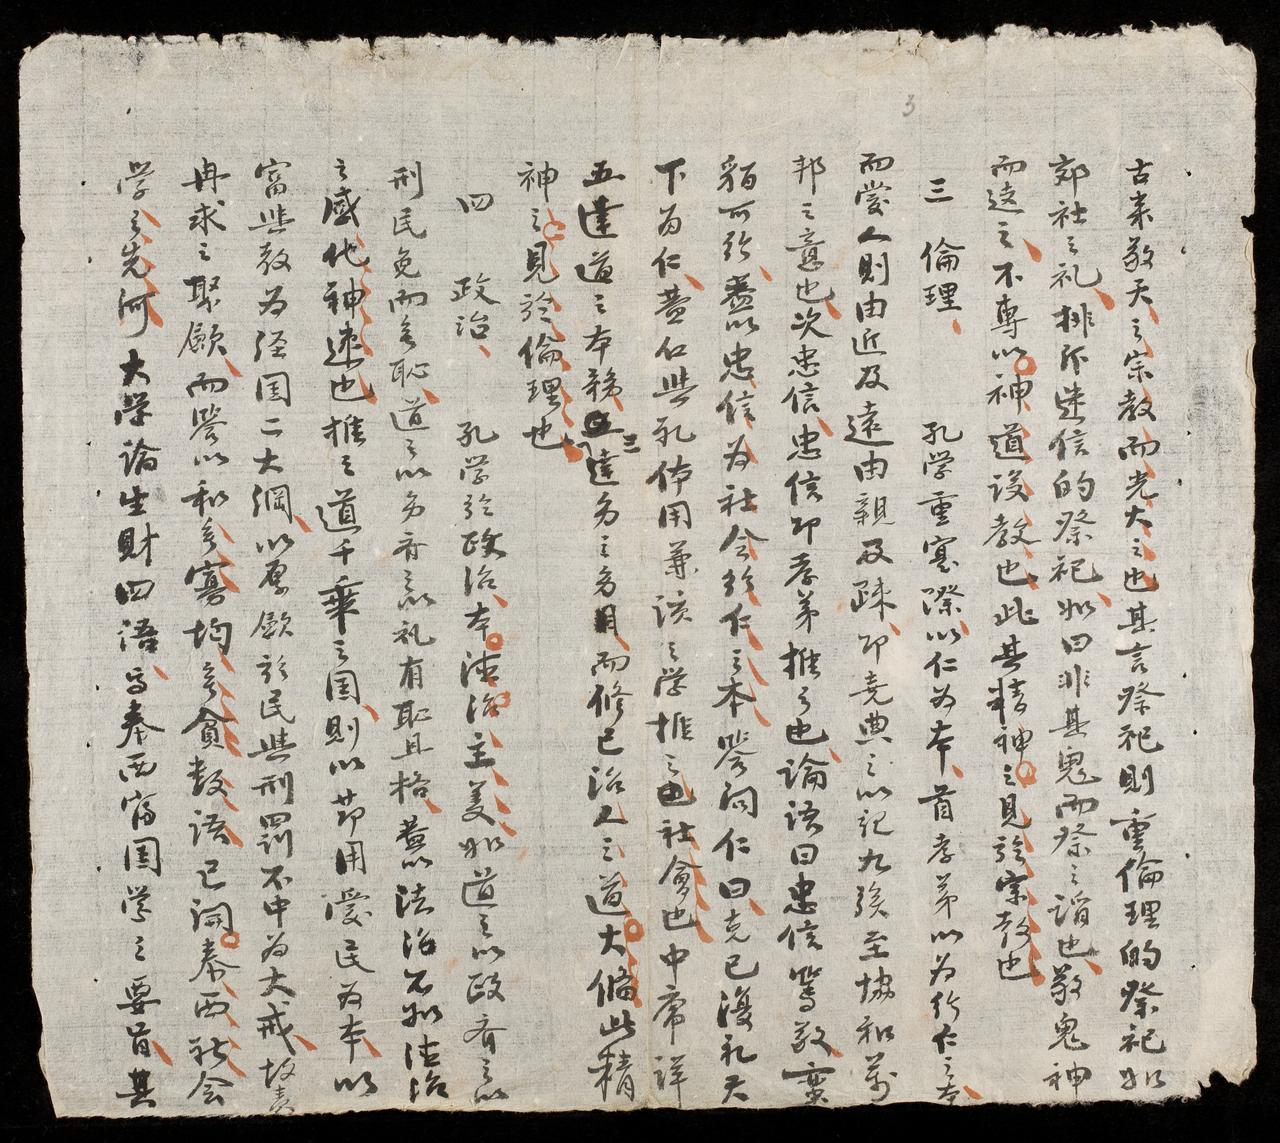 3
古来敬天之宗教而光大之也其言祭祀則重倫理的祭祀如
郊社之礼排斥迷信的祭祀如曰非其鬼而祭之諂也敬鬼神
而遠之不專以神道設教也此其精神之見於宗教也
三 倫理 孔学重實際以仁為本首孝弟以為行仁之本
而愛人則由近及遠由親及疎即堯典之以記九族至協和萬
邦之意也次忠信忠信即孝弟推之也論語曰忠信篤敬蠻
貊可行蓋以忠信為社会行仁之本答問仁曰克己復礼天
下為仁蓋仁些孔体用兼該之学推之由社會也中庸詳
五達道之本務三達為之為目而修己治人之道大備此精
神之見於倫理也
四 政治 孔学於政治本德治主義如道之以政齐之以
刑民免而无恥道之以为齐之以礼有恥且格蓋以法治不如德治
之感化神速也推之道千乘之国則以節用愛民為本以
富些教為経国二大綱以厚歛於民些刑罰不中為大戒故責
冉求之聚歛而答以和无寡均无貧数語已開泰西社会
学之先河大学論生財四語為泰西富国学之要旨其